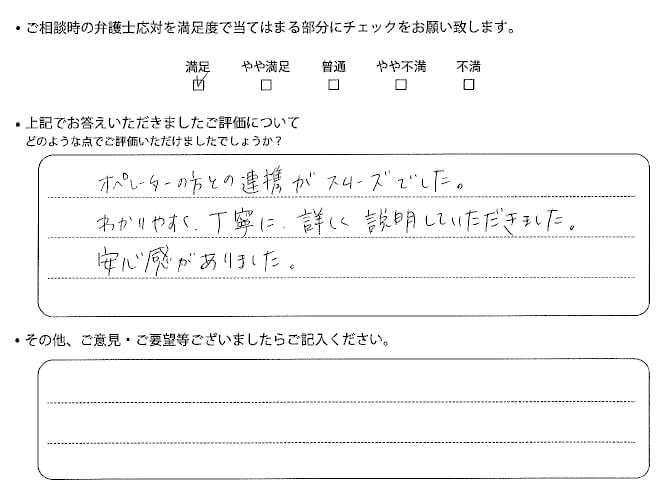 ・ご相談時の弁護士応対を満足度で当てはまる部分にチェックをお願い致します。
満足 やや満足 普通 やや不満 不満
☑ □ □ □ □
・上記でお答えいただきましたご評価について
どのような点でご評価いただけましたでしょうか？
オペレーターの方との連携がスムーズでした。
わかりやすく、丁寧に、詳しく説明していただきました。
安心感がありました。
・その他、ご意見・ご要望等ございましたらご記入ください。